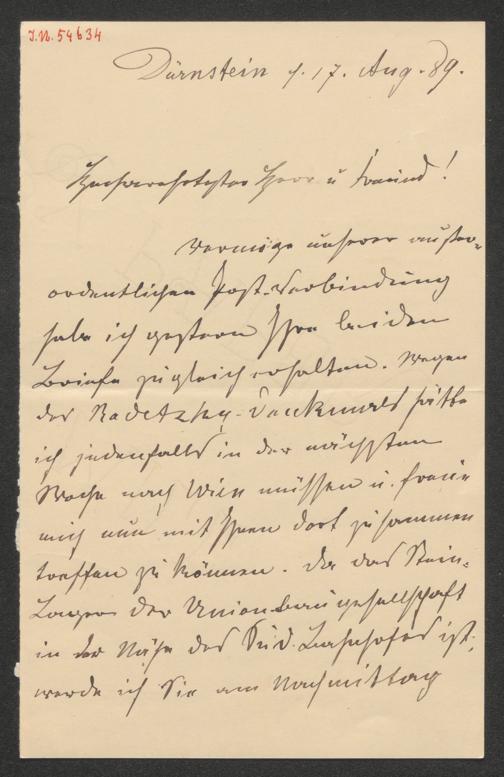 J.N. 54634
Dürnstein d. 17. Aug. 89.
Hochverehrtester Herr u Freund!
Vermöge unserer außer-
ordentlichen Post-Verbindung
habe ich gestern Ihre beiden
Briefe zugleich erhalten. Wegen
des Radetzky-Denkmals hätte
ich jedenfalls in der nächsten
Woche nach Wien müssen u. freue
mich nun mit Ihnen dort zusammen
treffen zu können. Da das Stein-
Lager der Unionbaugesellschaft
in der Nähe des Süd-Bahnhofes ist,
werde ich Sie am Nachmittag